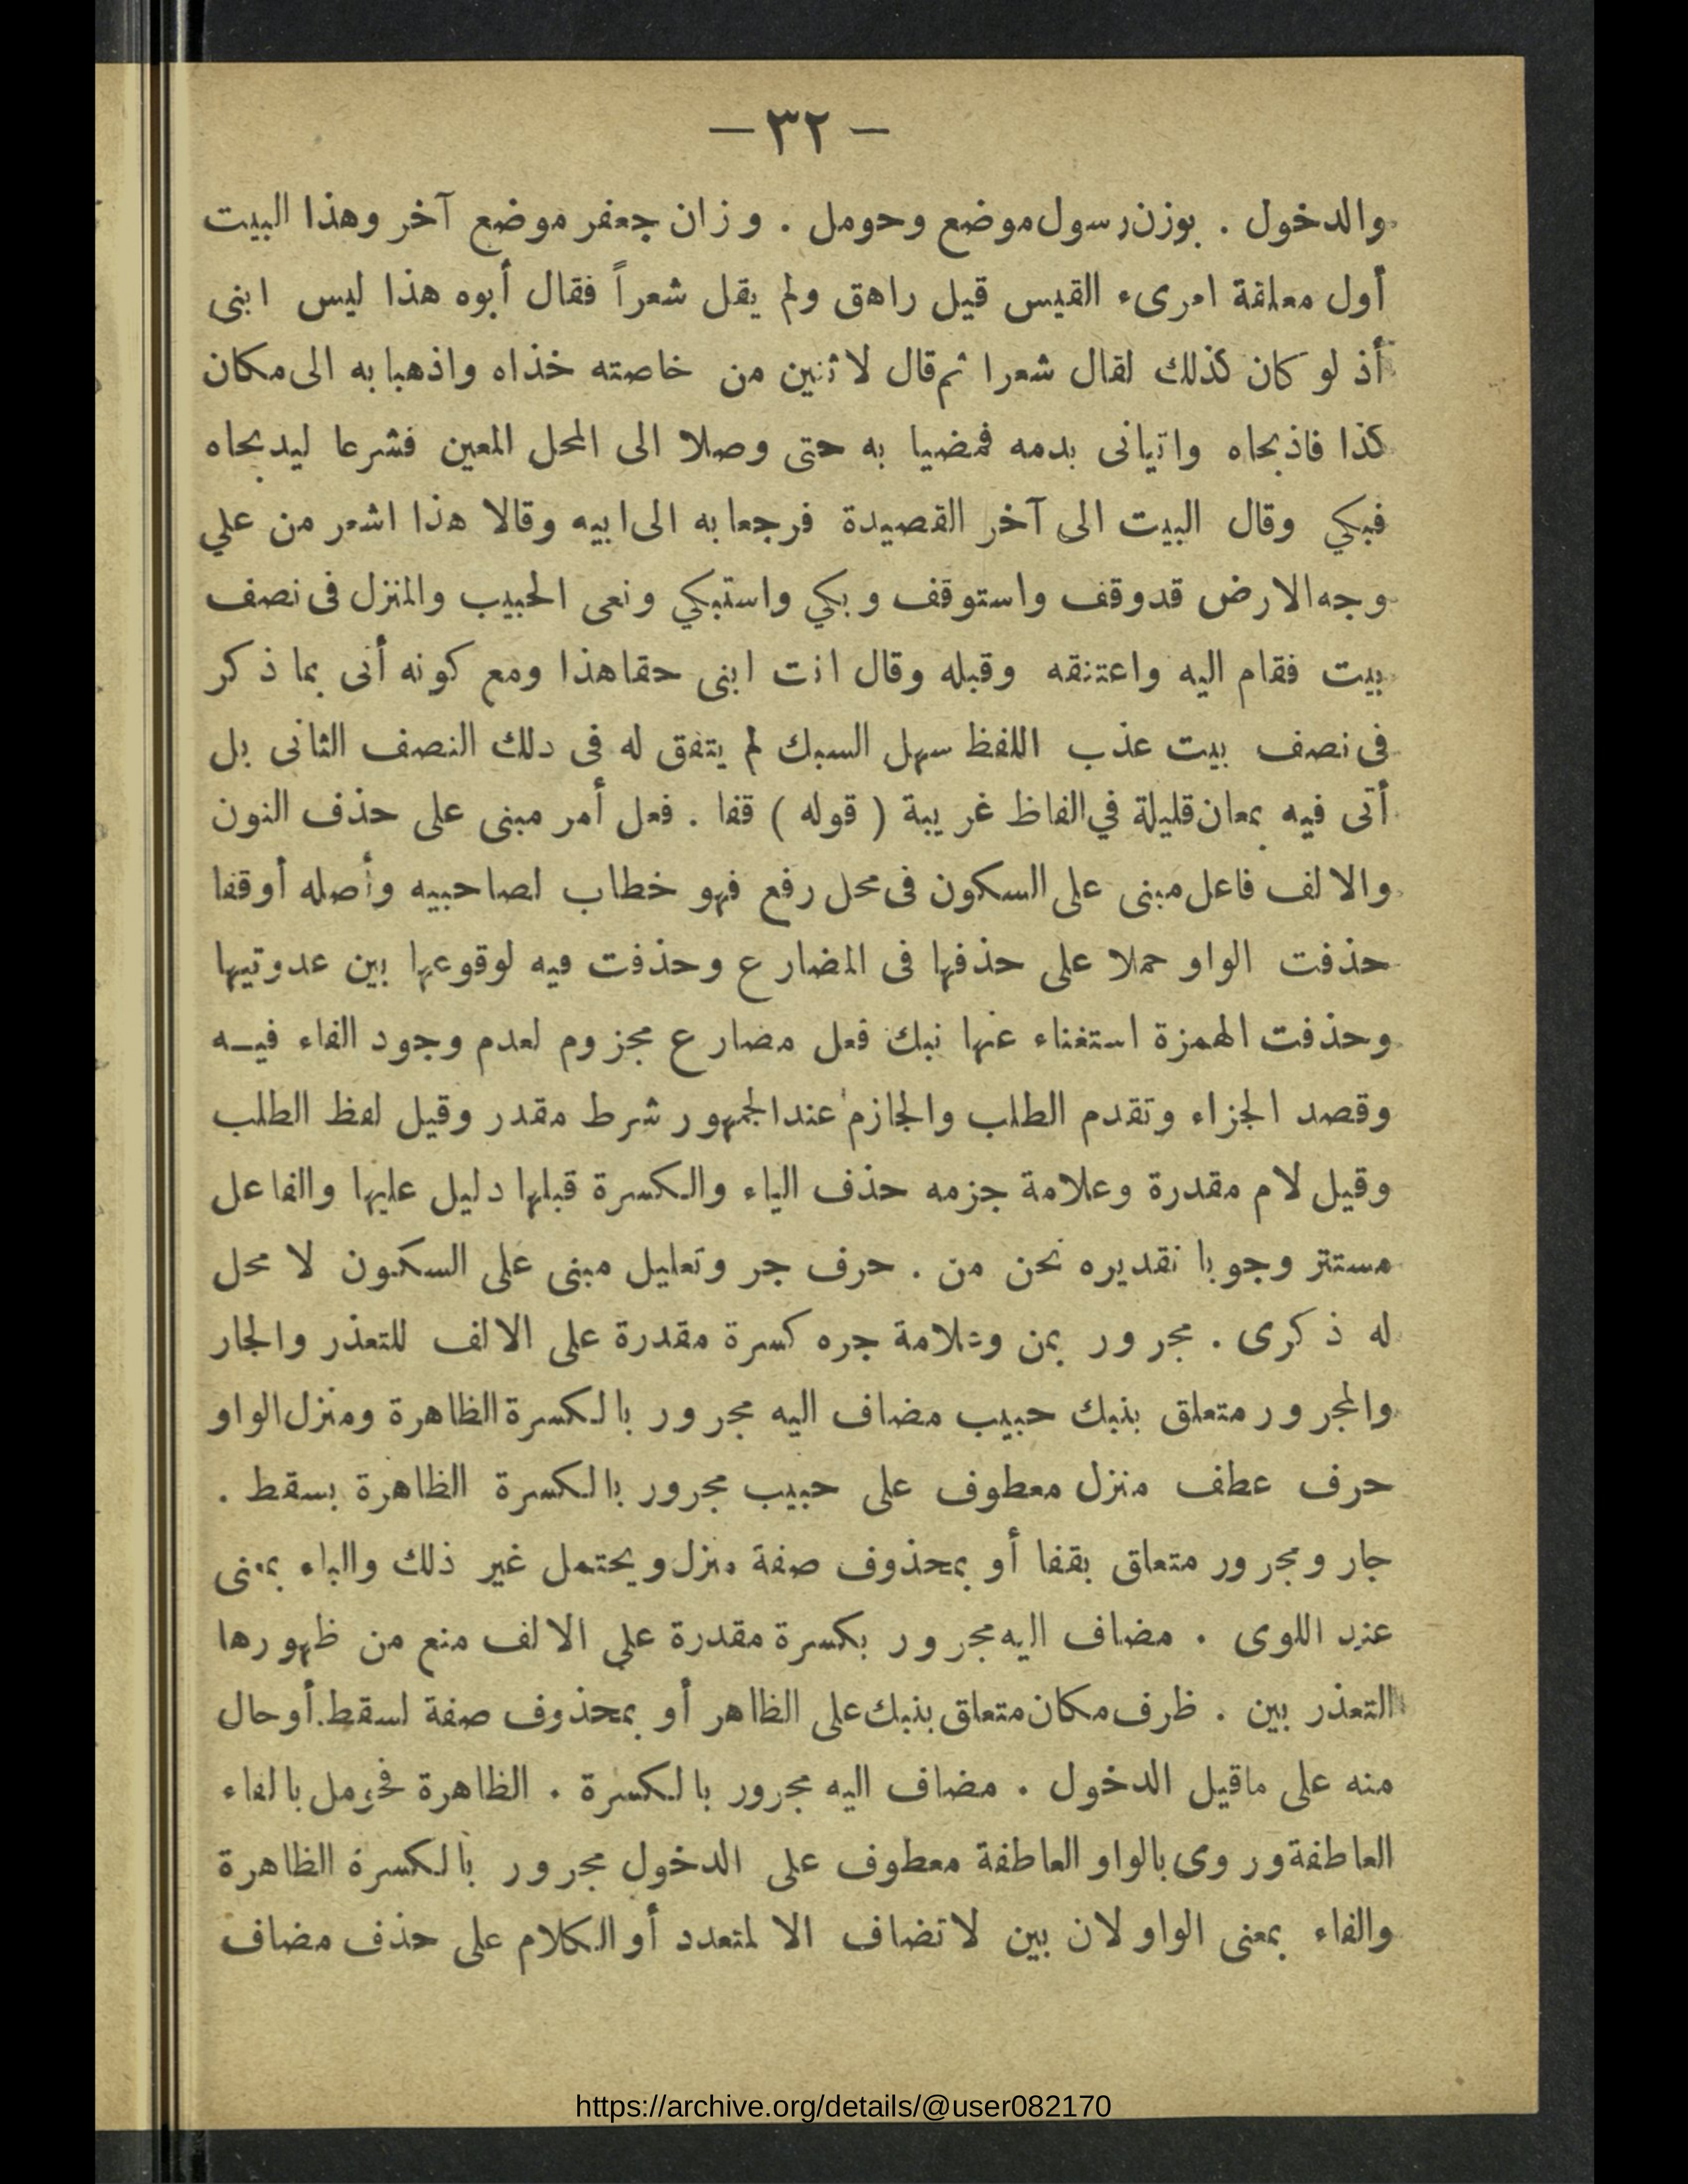 — ٣٢ —
والدخول . بوزن رسول موضع وحومل . وزان جعفر موضع آخر وهذا البيت
أول معلقة امرىء القيس قيل راهق ولم يقل شعراً فقال أبوه هذا ليس ابنى
أذ لو كان كذلك لقال شعرا ثم قال لاثنين من خاصته خذاه واذهبا به الى مكان
كذا فاذبحاه واتيانى بدمه فمضيا به حتى وصلا الى المحل المعين فشرعا ليدبحاه
فبكي وقال البيت الى آخر القصيدة فرجعا به الى ابيه وقالا هذا اشعر من علي
وجه الارض قد وقف واستوقف وبكي واستبكي ونعى الحبيب والمنزل فى نصف
بيت فقام اليه واعتنقه وقبله وقال انت ابنى حقا هذا ومع كونه أنى بما ذكر
فى نصف بيت عذب اللفظ سهل السبك لم يتفق له فى دلك النصف الثانى بل
أتى فيه بمعان قليلة في الفاظ غريبة ( قوله ) قفا . فعل أمر مبنى على حذف النون
والالف فاعل مبنى على السكون فى محل رفع فهو خطاب لصاحبيه وأصله أوقفا
حذفت الواو حملا على حذفها فى المضارع وحذفت فيه لوقوعها بين عدوتيها
وحذفت الهمزة استغناء عنها نبك فعل مضارع مجزوم لعدم وجود الفاء فيـه
وقصد الجزاء وتقدم الطلب والجازم عند الجمهور شرط مقدر وقيل لفظ الطلب
وقيل لام مقدرة وعلامة جزمه حذف الياء والكسرة قبلها دليل عليها والفاعل
مستتر وجوبا نقديره نحن من . حرف جر وتعليل مبنى على السكون لا محل
له ذكرى . مجرور بمن وعلامة جره كسرة مقدرة على الالف للتعذر والجار
والمجرور متعلق بنبك حبيب مضاف اليه مجرور بالكسرة الظاهرة ومنزل الواو
حرف عطف منزل معطوف على حبيب مجرور بالكسرة الظاهرة بسقط .
جار ومجرور متعلق بقفا أو بمحذوف صفة منزل ويحتمل غير ذلك والباء بمعنى
عند اللوى . مضاف اليه مجرور بكسرة مقدرة علي الالف منع من ظهورها
التعذر بين . ظرف مكان متعلق بنبك على الظاهر أو بمحذوف صفة لسقط أو حال
منه على ماقيل الدخول . مضاف اليه مجرور بالكسرة . الظاهرة فحومل بالفاء
العاطفة وروى بالواو العاطفة معطوف على الدخول مجرور بالكسرة الظاهرة
والفاء بمعنى الواو لان بين لاتضاف الا لمتعدد أو الكلام على حذف مضاف
https://archive.org/details/@user082170